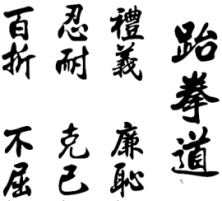 跆拳道
禮義 廉恥
忍耐 克己
百折 不屈